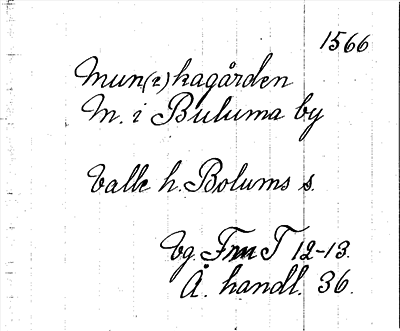 1566
Mun(r)kagården
M. i Buluma by
Valle h. Bolums s.
Vg. Fru T 12-13.
Å. handl. 36.